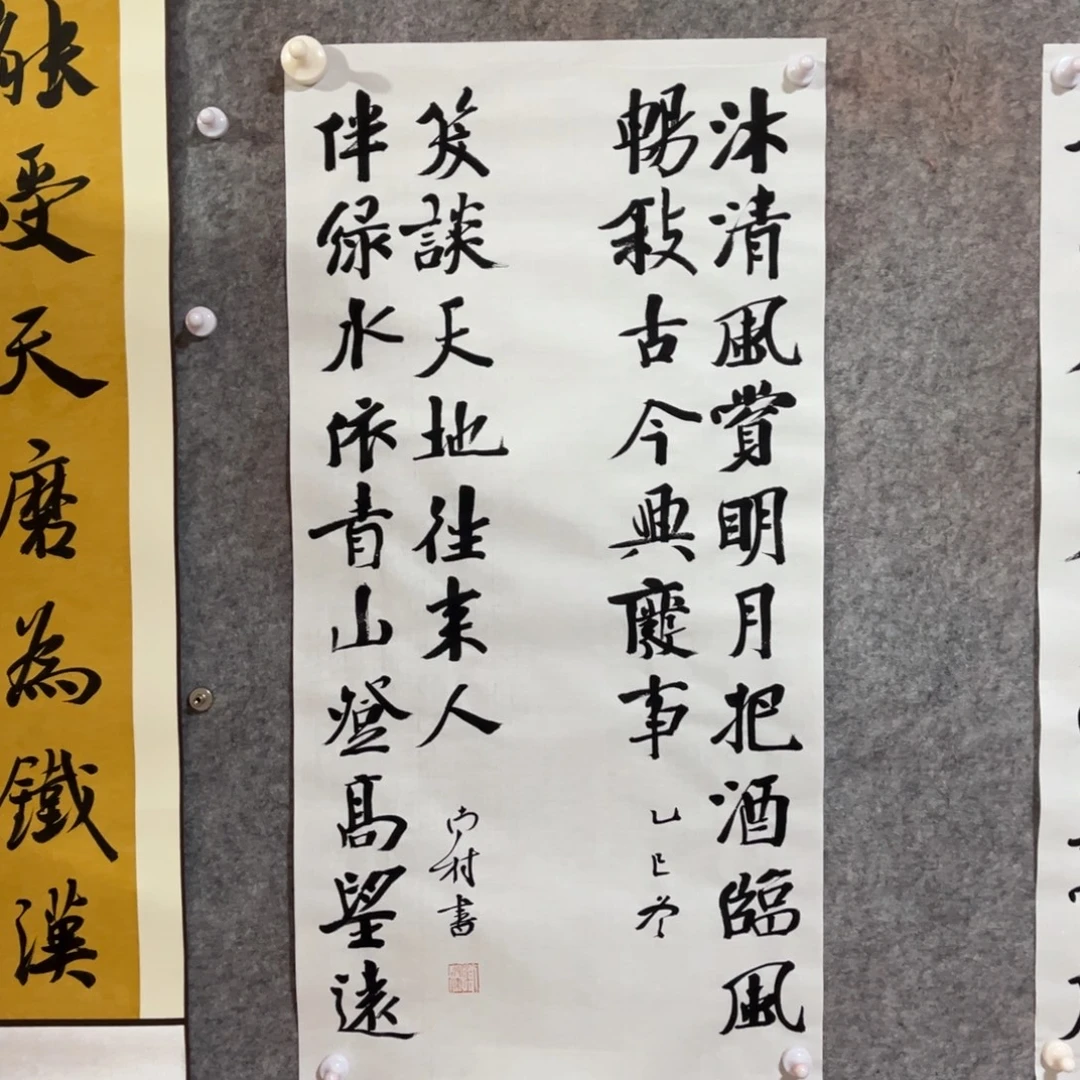 沐清風賞明月把酒臨風
暢敘古今興廢事
乙巳
伴緑水依青山登高望遠
笑談天地往來人
村書
能受天磨為鐵漢